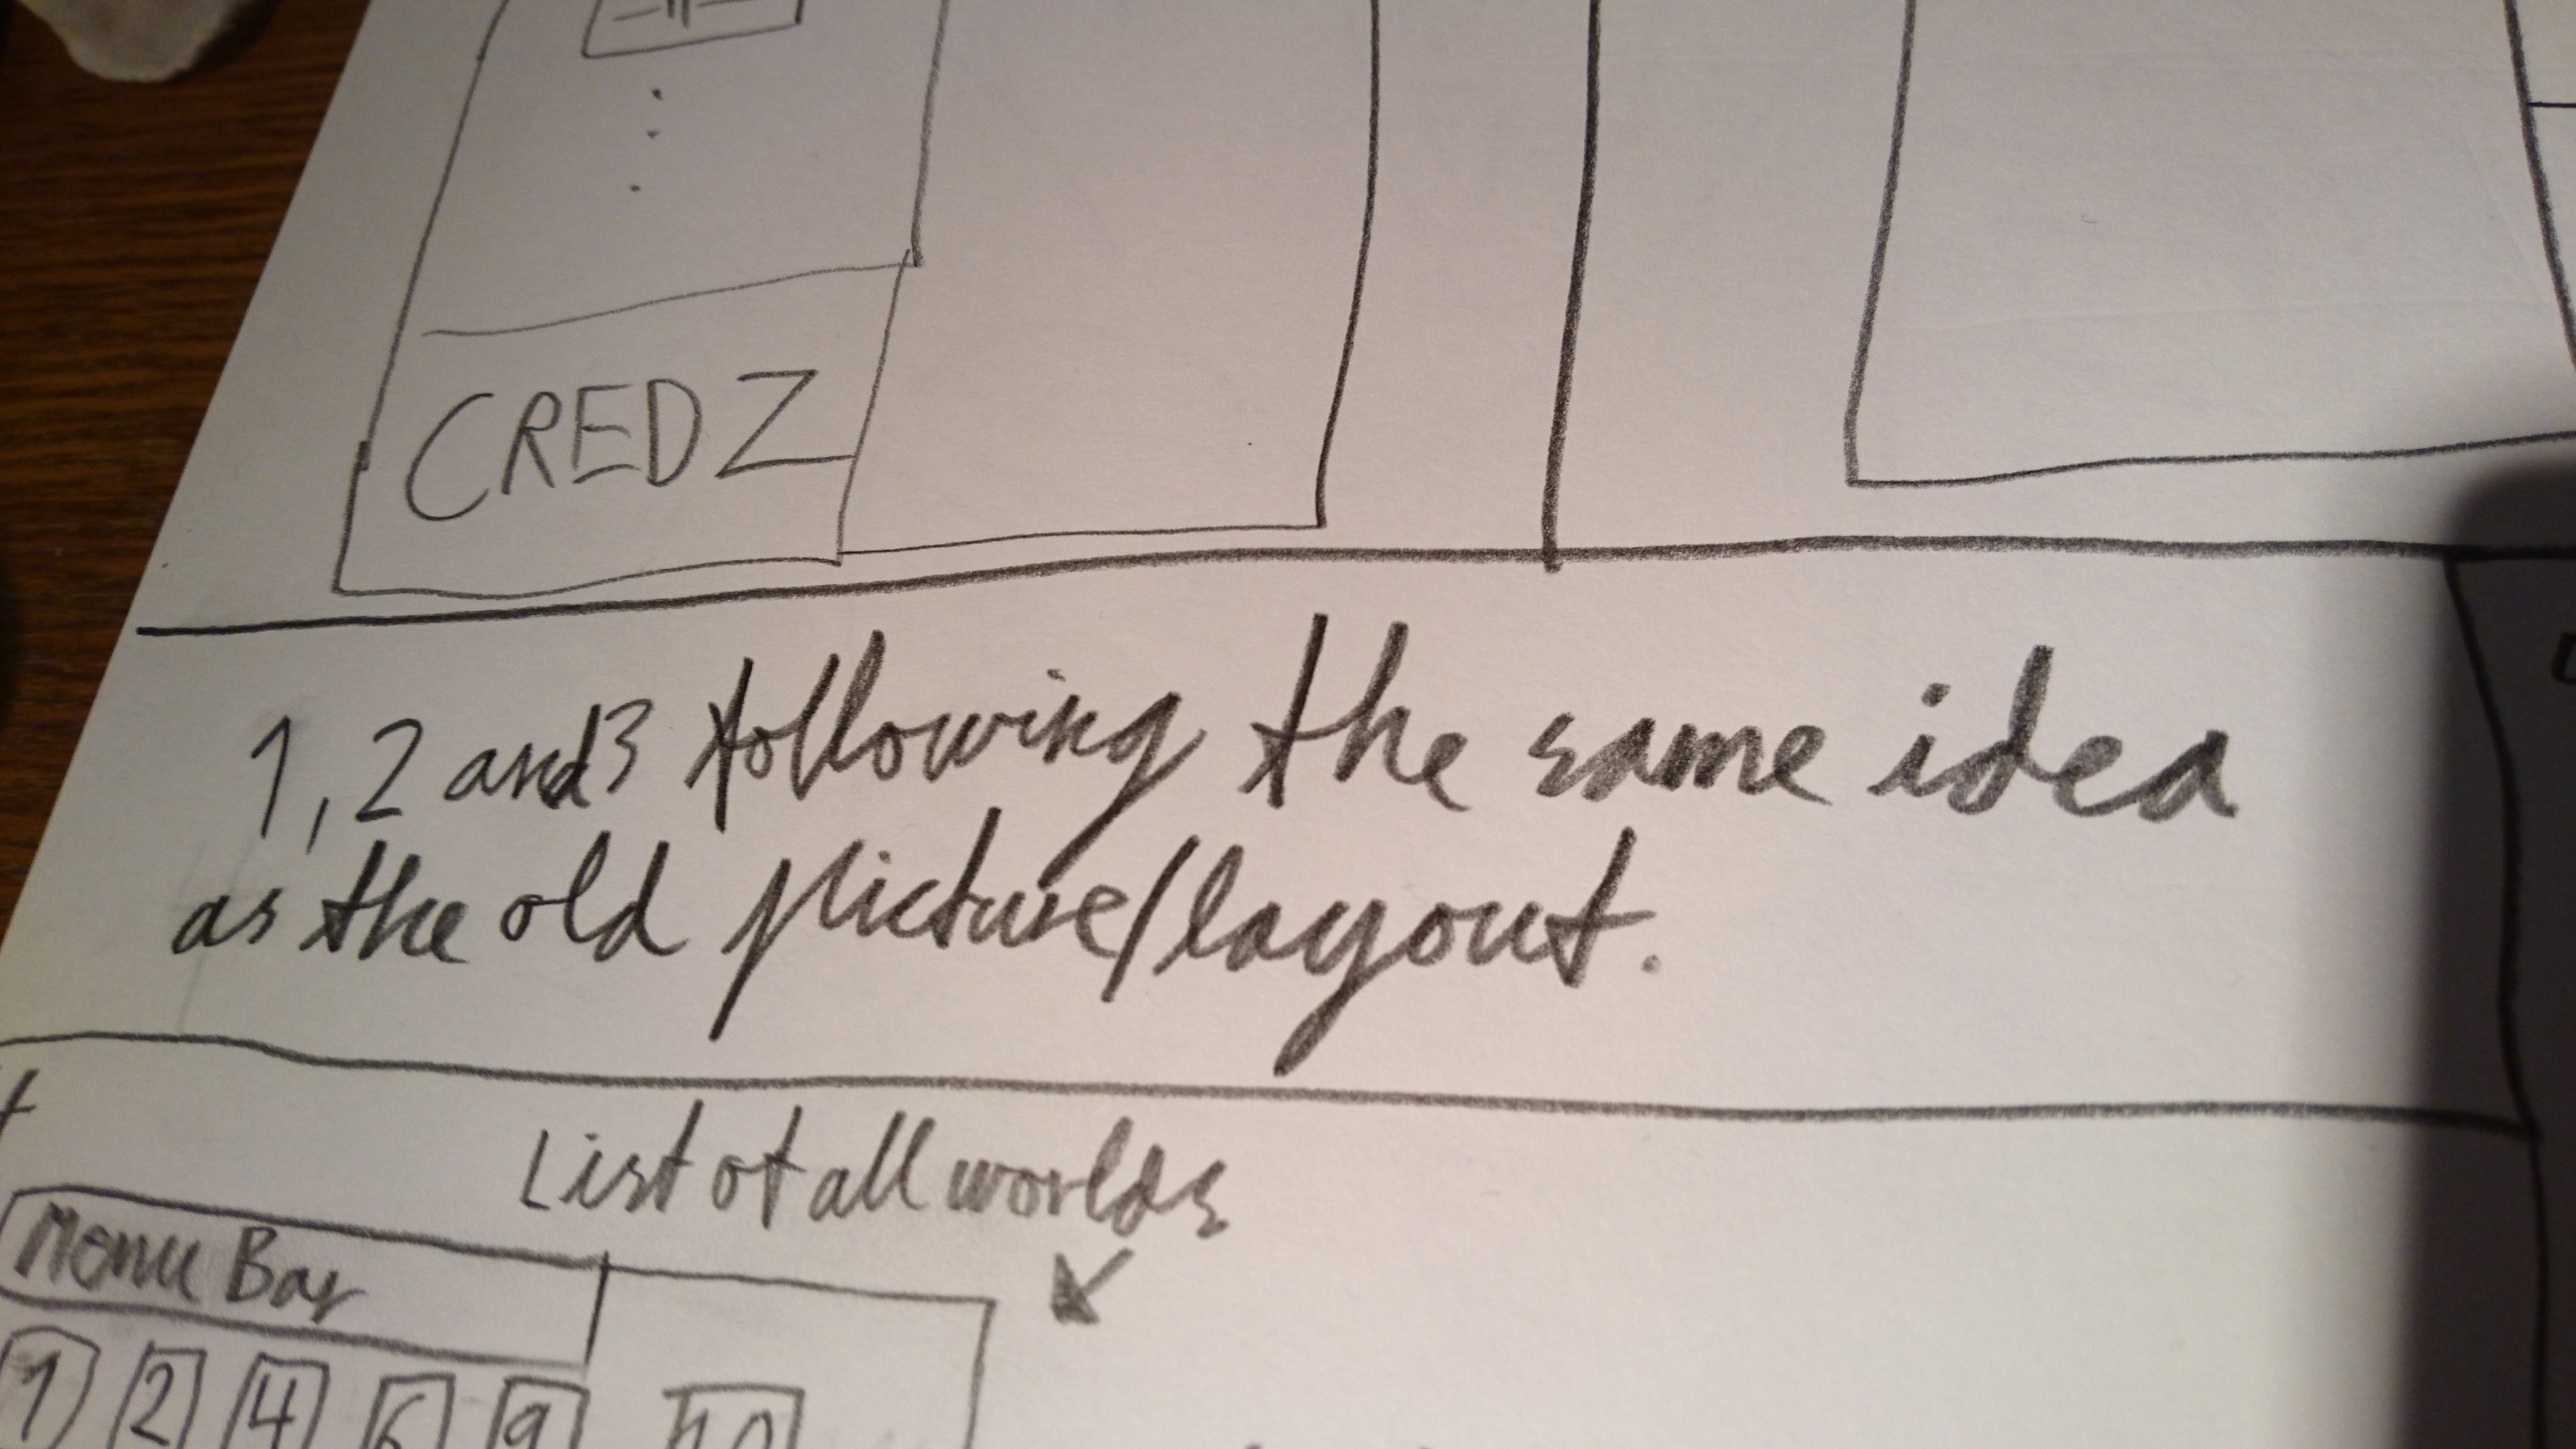 CREDZ
1, 2 and 3 following the same idea
as the old picture/layout.
List of all worlds
Menu Bar
1 2 4 6 9 10